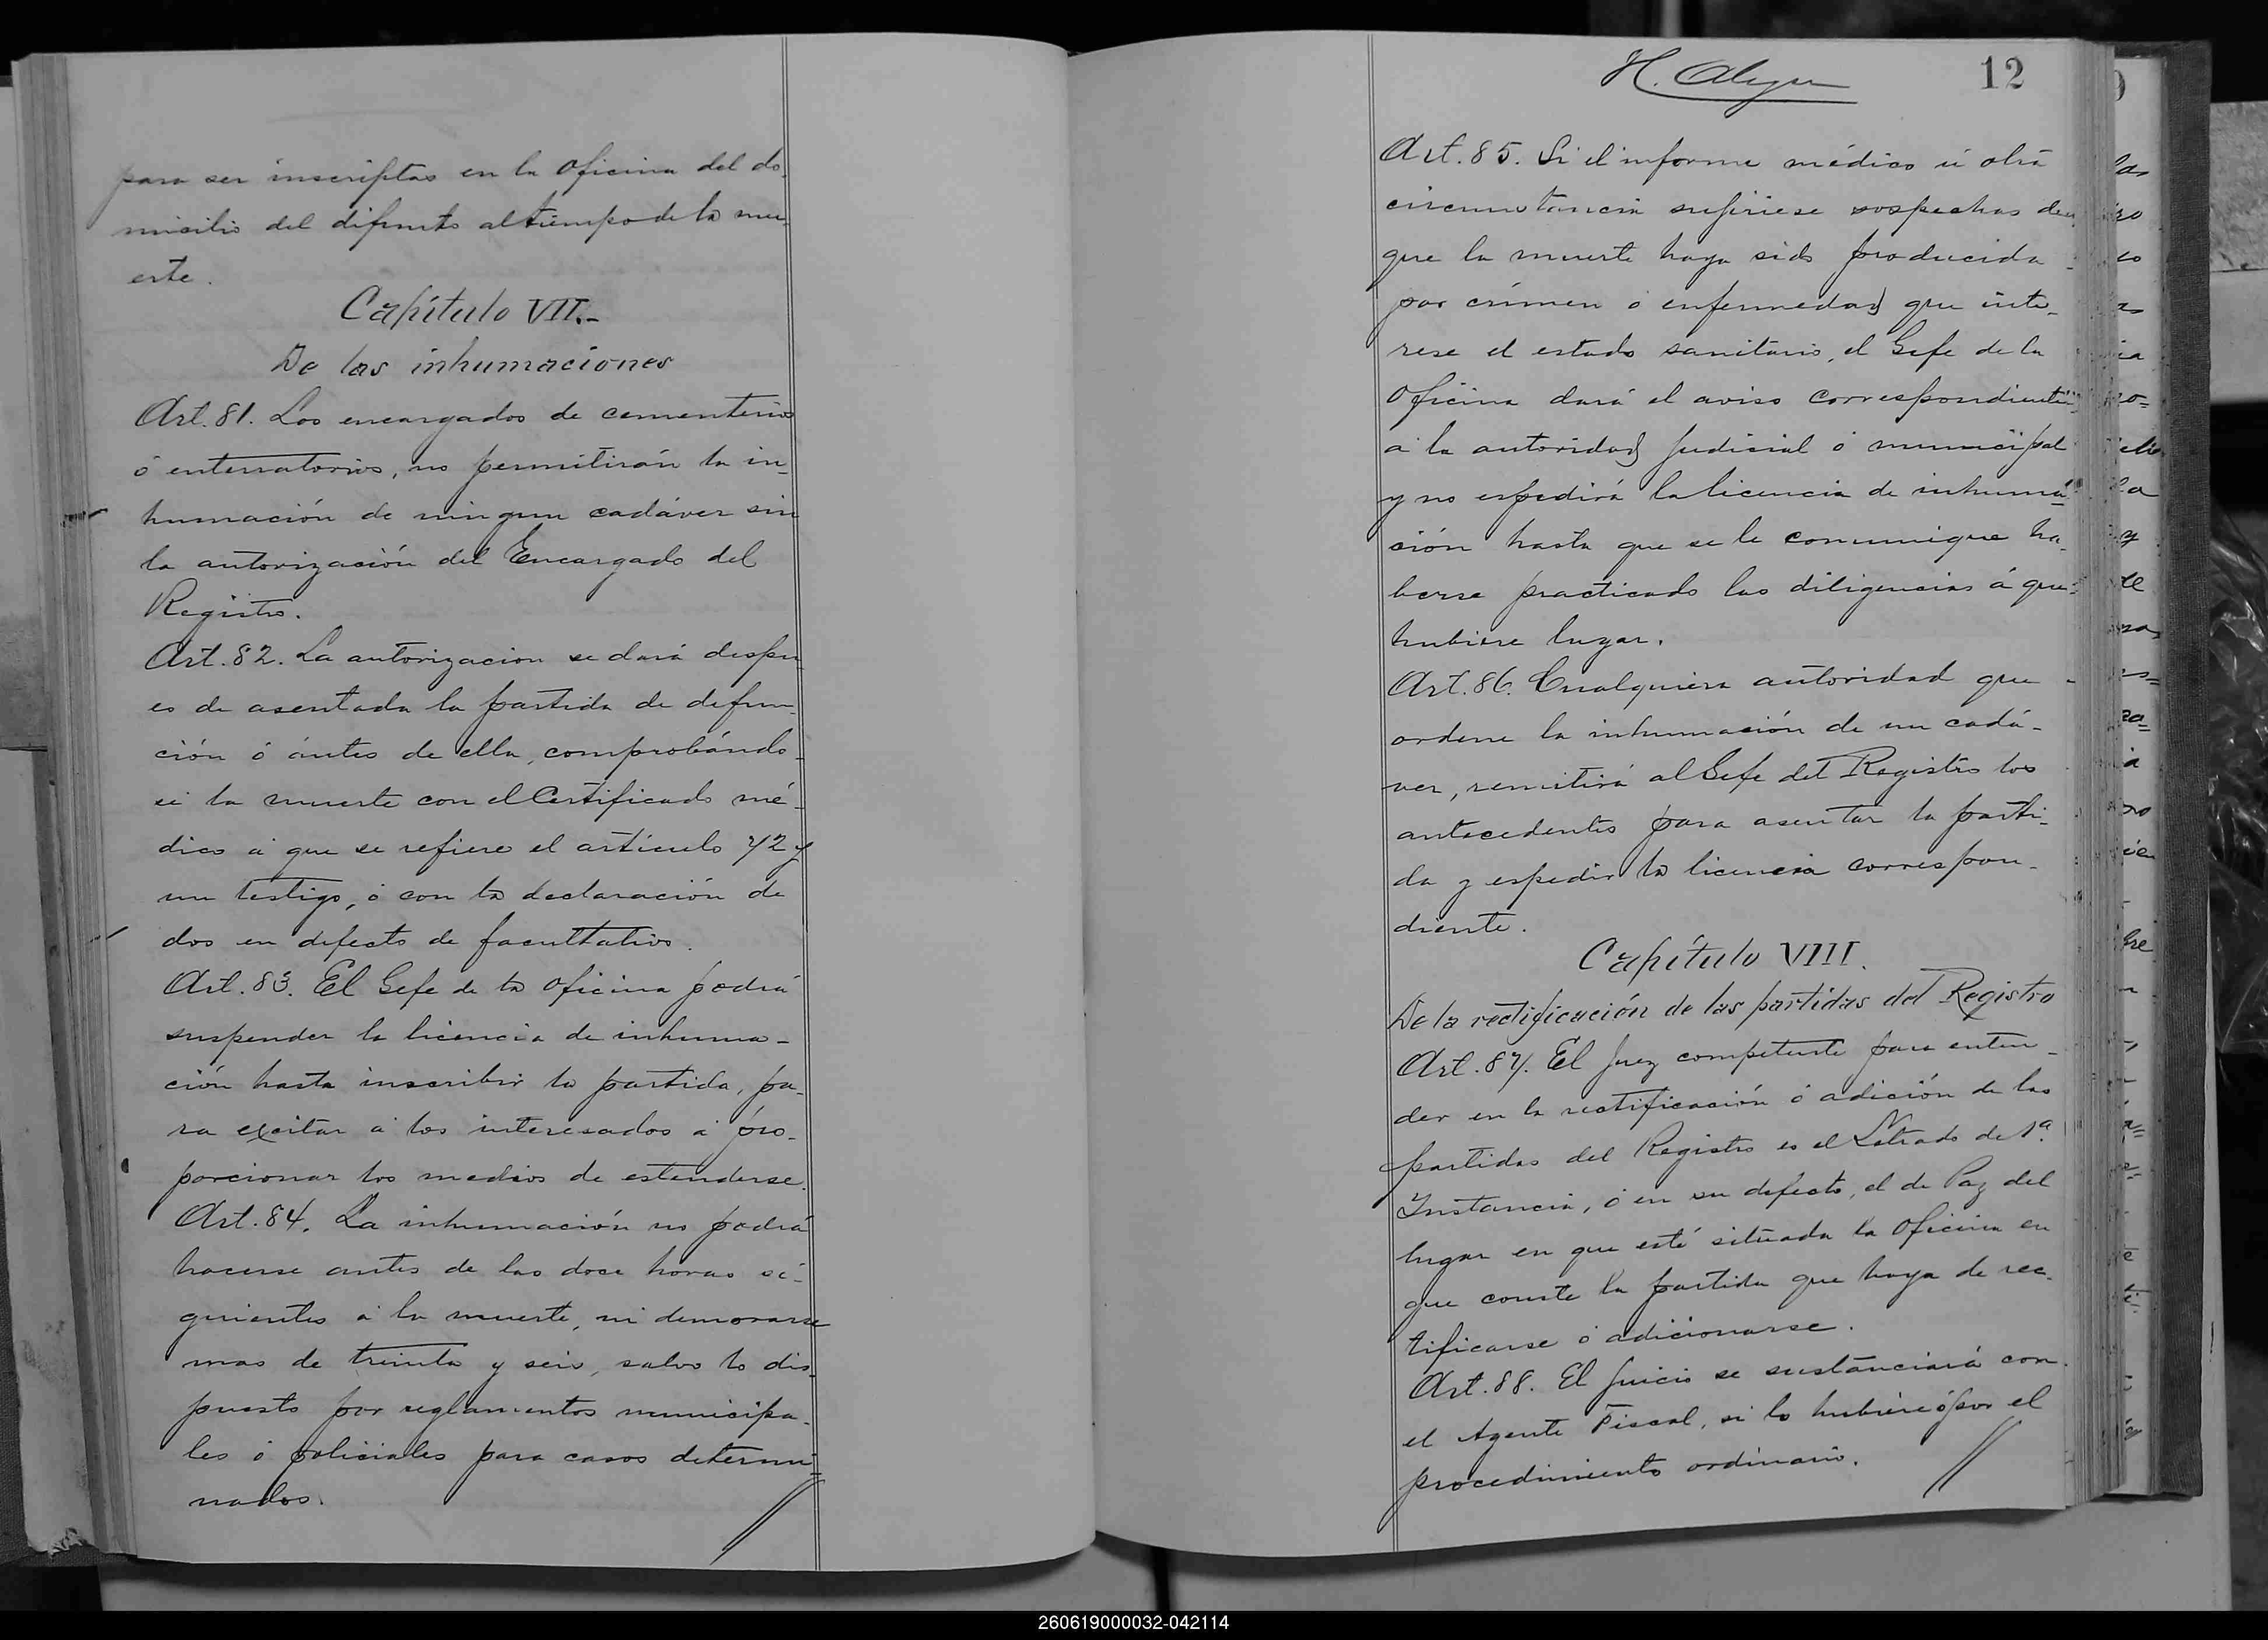 para ser inscriptas en la Oficina del do-
micilio del difunto al tiempo de la mu-
erte.
Capítulo VII.-
De las inhumaciones
Art. 81. Los encargados de cementerios
ó enterratorios, no permitirán la in-
humación de ningun cadáver sin
la autorización del Encargado del
Registro.
Art. 82. La autorizacion se dará despu
es de asentada la partida de defun-
ción ó ántes de ella, comprobándo-
se la muerte con el Certificado mé-
dico á que se refiere el artículo 72 y
un testigo, ó con la declaración de
dos en defecto de facultativo.
Art. 83. El Gefe de la Oficina podrá
suspender la licencia de inhuma-
ción hasta inscribir la partida, pa-
ra excitar á los interesados á pro-
porcionar los medios de estenderse.
Art. 84. La inhumación no podrá
hacerse antes de las doce horas si-
guientes á la muerte, ni demorarse
mas de treinta y seis, salvo lo dis-
puesto por reglamentos municipa-
les ó policiales para casos determi-
nados.
12
Art. 85. Si el informe médico ú otra
circunstancia sugiriese sospechas de
que la muerte haya sido producida
por crímen ó enfermedad que inte-
rese el estado sanitario, el Gefe de la
Oficina dará el aviso correspondiente
á la autoridad judicial ó municipal
y no espedirá la licencia de inhuma-
ción hasta que se le comunique ha-
berse practicado las diligencias á que
hubiere lugar.
Art. 86. Cualquiera autoridad que
ordene la inhumación de un cadá-
ver, remitirá al Gefe del Registro los
antecedentes para asentar la parti-
da y espedir la licencia correspon-
diente.
Capítulo VIII.
De la rectificación de las partidas del Registro
Art. 87. El Juez competente para enten-
der en la rectificación ó adición de las
partidas del Registro es el Letrado de 1ª
Instancia, ó en su defecto, el de Paz del
lugar en que esté situada la Oficina en
que conste la partida que haya de rec-
tificarse ó adicionarse.
Art. 88. El juicio se sustanciará con
el Agente Fiscal, si lo hubiere ó por el
procedimiento ordinario.
260619000032-042114